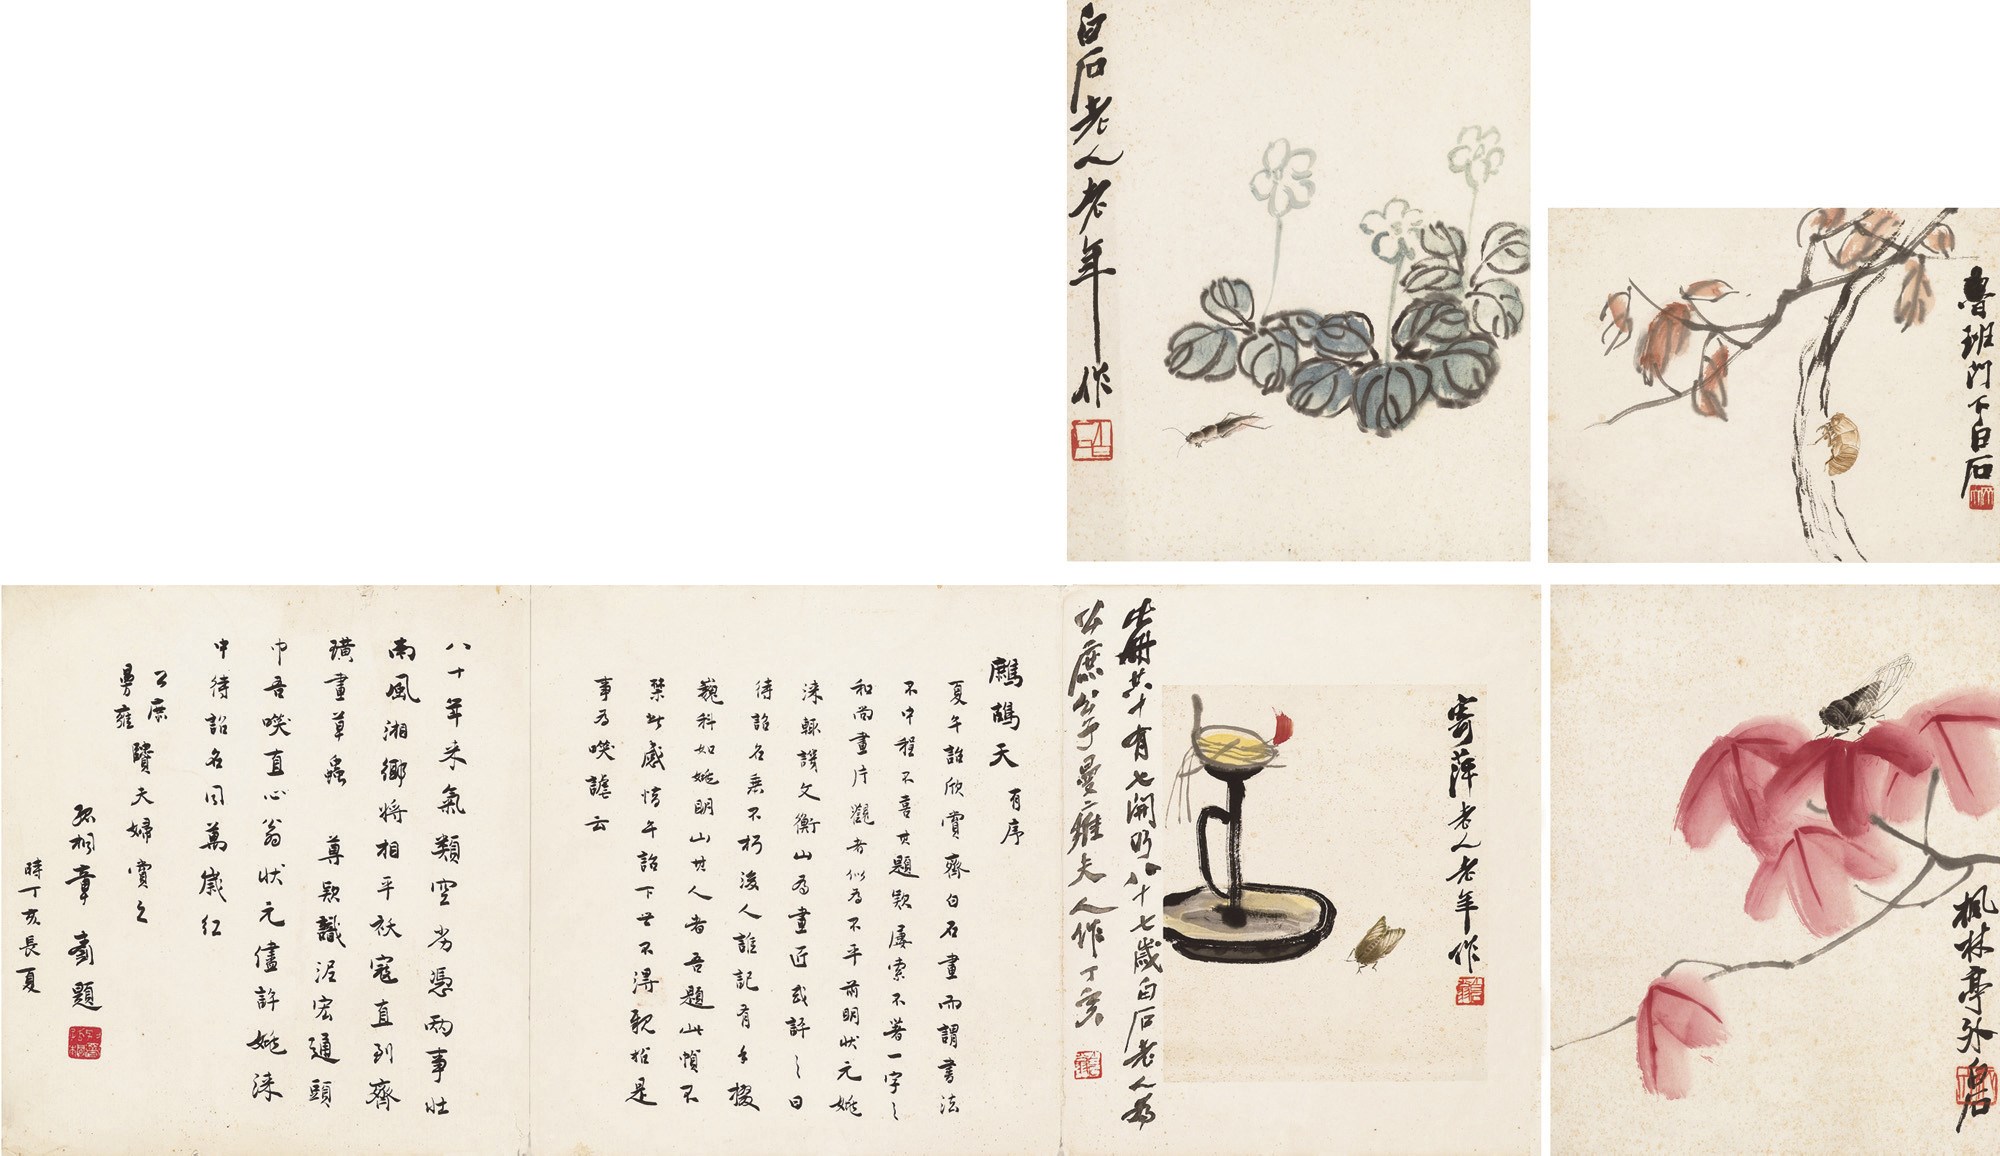 魯班門下白石
白石老人老年作
楓林亭外白石
寄萍老人老年作
此冊共十有七開時八十七歲白石老人為
公庶公子曼雍夫人作丁亥
鷓鴣天 有序
夏午詒欣賞齊白石畫而謂書法
不中程不喜其題款屢索不著一字之
和尚畫片觀者似為不平前明狀元姚
淶輒謗文衡山為畫匠或評之曰
待詔名垂不朽後人誰記有手掇
巍科如姚明山其人者吾題此幀不
禁此感惜午詒下世不得親於是
事為噗謔云
八十年來氣類空劣憑兩事壯
南風湘鄉將相平袄寇直到齊
璜畫草蟲 尊款識泥宏通頭
巾吾噗直心翁狀元儘許姚淶
中待詔名同萬歲紅
公庶
曼雍 賢夫婦賞之
孤桐章士釗題
時丁亥長夏